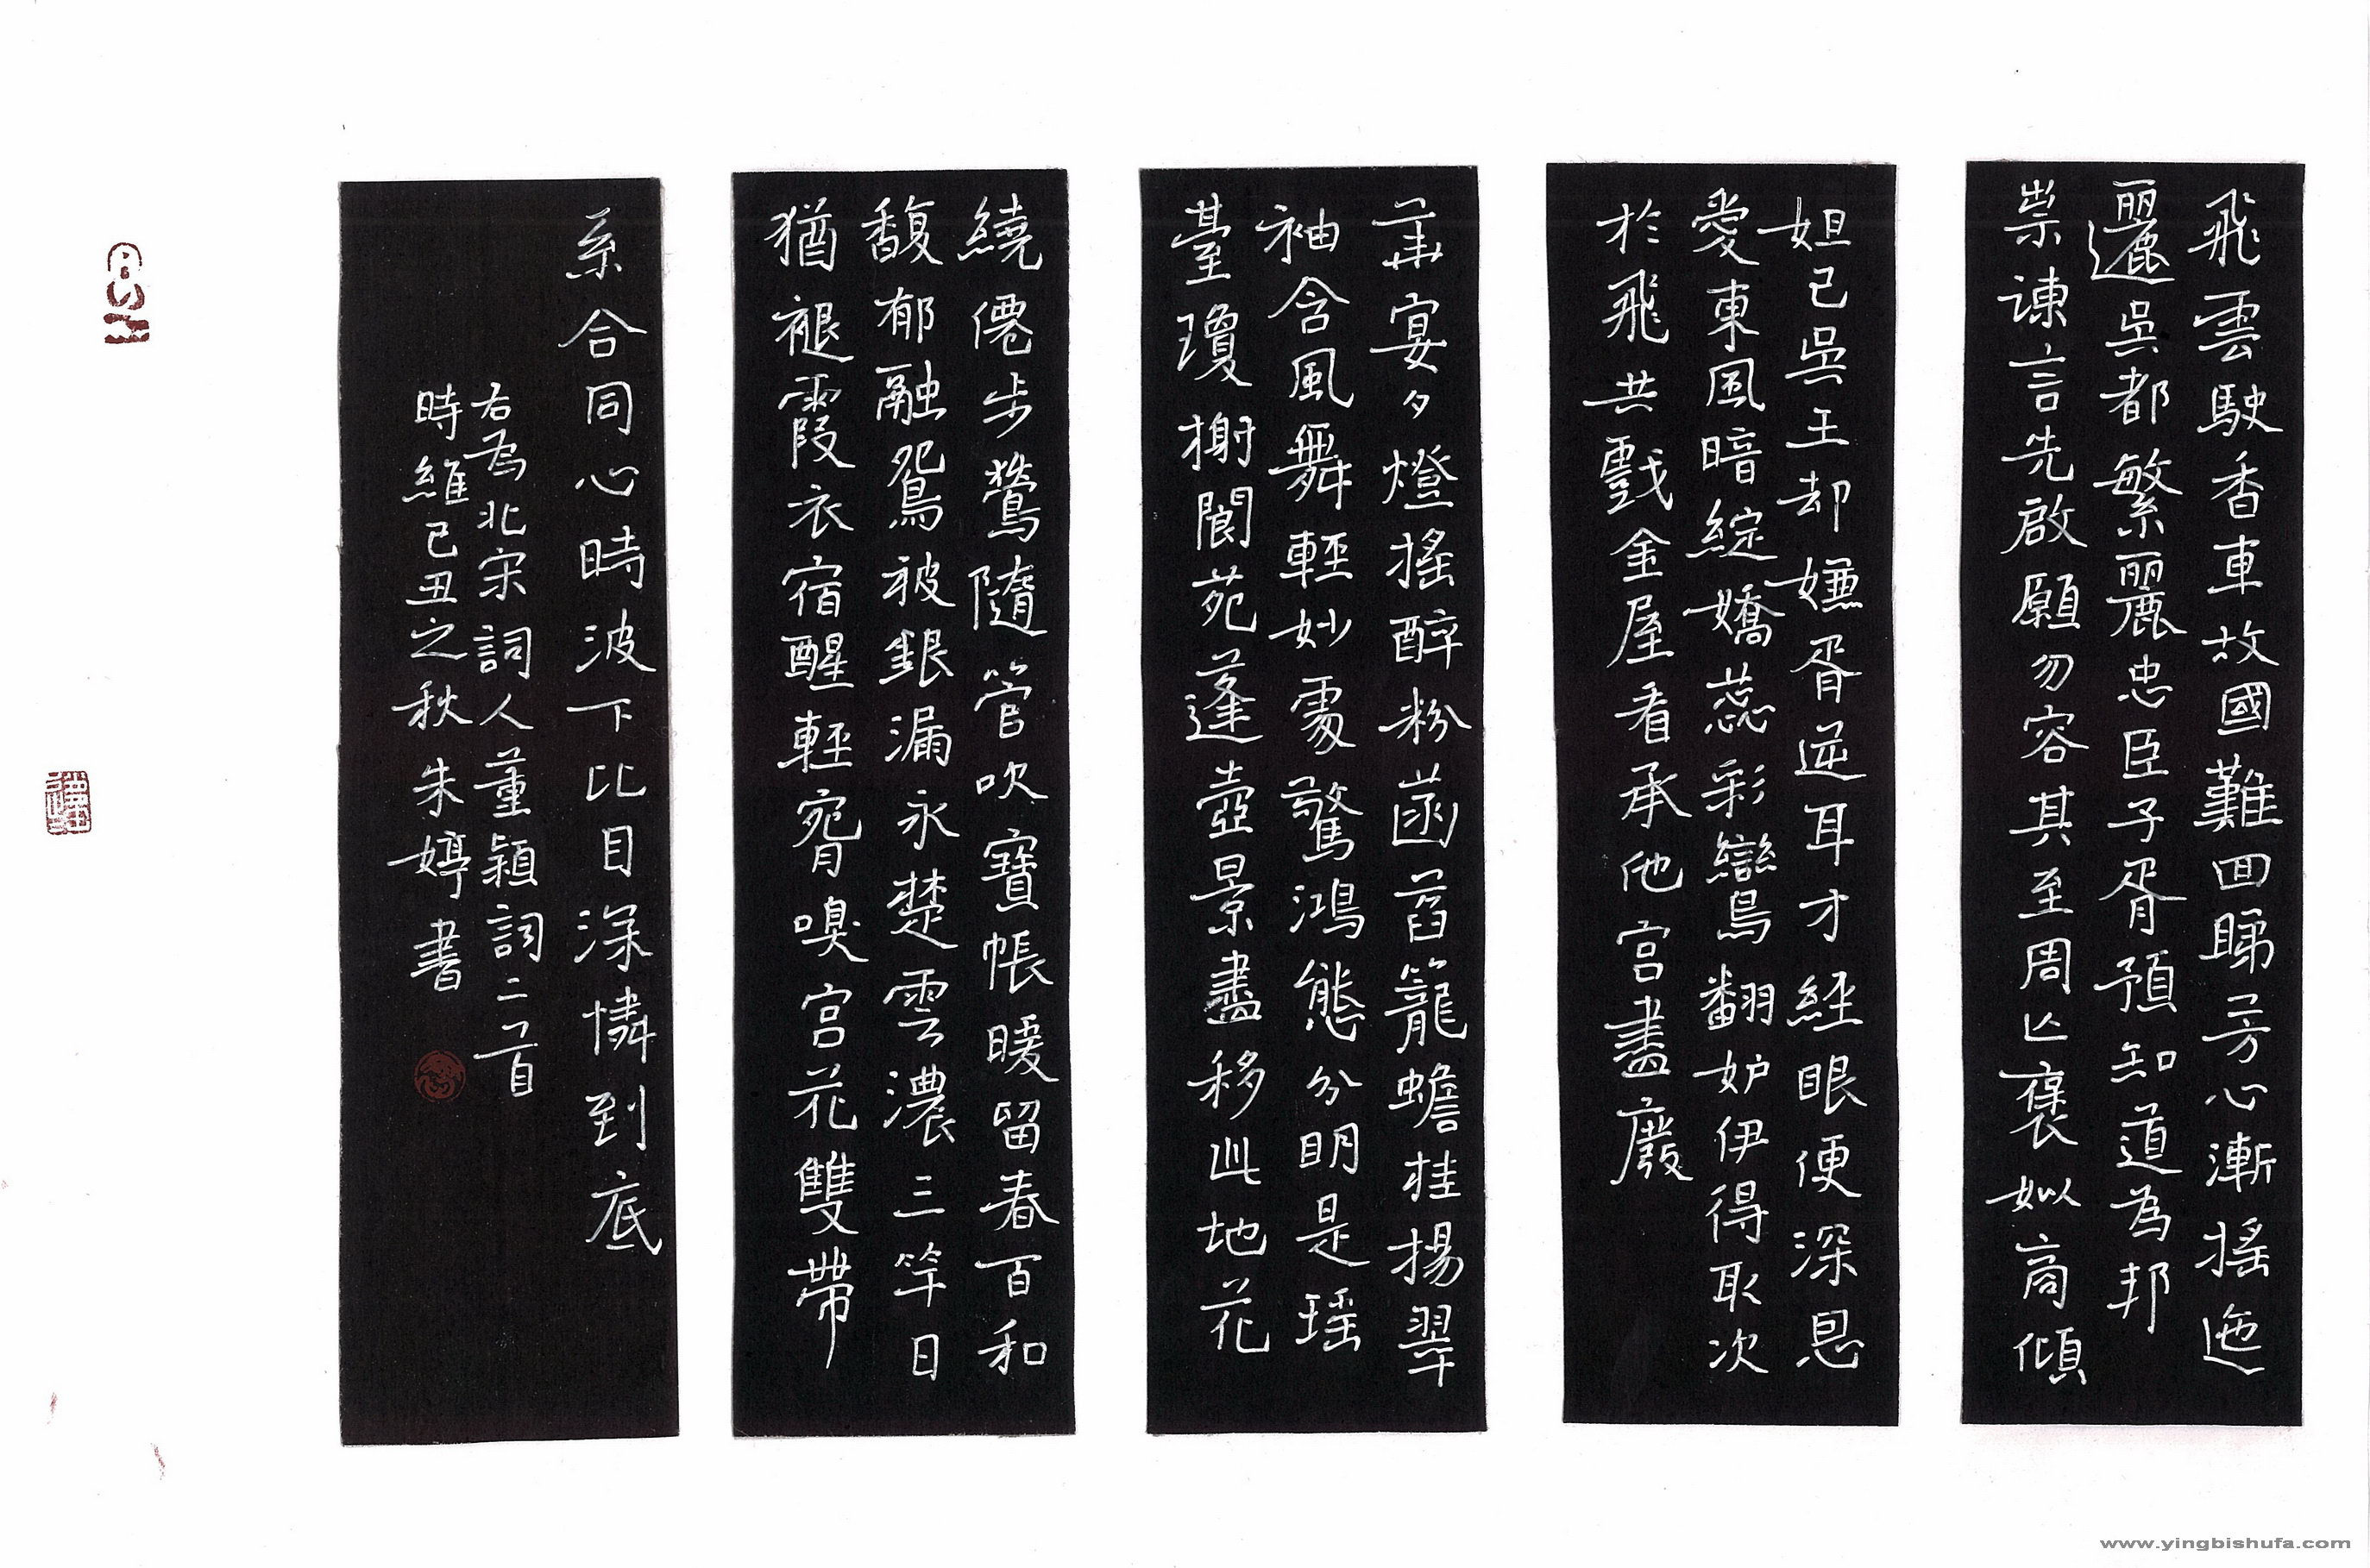 飛雲駛香車故國難回睇芳心漸搖迤
邐吳都繁麗忠臣子胥預知道為邦
祟諫言先啟願勿容其至周亡褒姒商傾
妲己吳王却嫌胥逆耳才經眼便深恩
愛東風暗綻嬌蕊彩鸞翻妒伊得取次
於飛共戲金屋看承他宮盡廢
華宴夕燈搖醉粉菡萏籠蟾桂揚翠
袖含風舞輕妙處驚鴻態分明是瑤
臺瓊榭閬苑蓬壺景盡移此地花
繞僊步鶯隨管吹寶帳暖留春百和
馥郁融鴛被銀漏永楚雲濃三竿日
猶褪霞衣宿醒輕腕嗅宮花雙帶
系合同心時波下比目深憐到底
右為北宋詞人董穎詞二首
時維己丑之秋朱婷書
www.yingbishufa.com